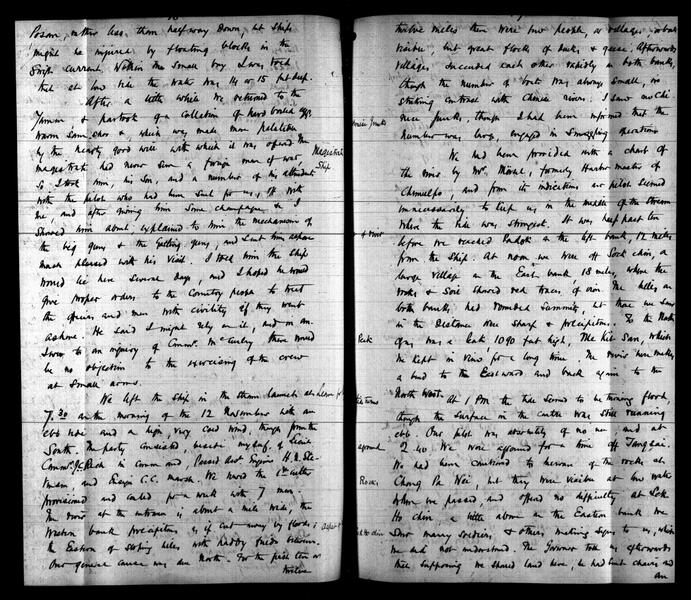 rather less than half way down, but ships
might be injured by floating blocks in the
swift current. Within the small bay I was told
that at low tide the water was 14 or 15 feet deep.
After a little while we returned to the
Yamen & partook of a collection of hard boiled eggs,
warm samchoo &c, which was made more palatable
by the hearty good will with which it was offered the
Magistrate's
Ship
magistrate had never seen a foreign man of war,
so I took him, his son, and a number of his attendants
with the pilot who had been sent for us, off with
me, and after giving him some champagne &c I
showed him about, explained to him the mechanism of
the big guns & the gatling guns, and sent him ashore
much pleased with his visit. I told him the ship
would lie here several days, and I hoped he would
give proper orders to the country people to treat
the officers and men with civility if they went
ashore. He said I might rely on it, and in an-
swer to an inquiry of Comdr. McCauley, there would
be no objection to the exercising of the crew
at small arms.
We left the ship in the steam launch at
7.30 on the morning of the 12 November with an
ebb tide and a light very cold wind, though from the
South. The party consisted, beside myself, of Lieut
Comdr. in command, Passed Asst. Engineer H. N.
and Ensign C. C. Marsh. We had the cutter
provisioned and coaled for a week with 7 men.
The river at the entrance is about a mile wide, the
Western bank precipitous as if cut away by floods;
the Eastern of sloping hills with muddy fields between.
Our general course was due North. For the first ten or
twelve
twelve miles there were few people, or villages or boats
visible, but great flocks of ducks & geese. Afterwards
villages succeeded each other rapidly on both banks,
though the number of boats was always small, in
striking contrast with Chinese rivers. I saw no Chi-
nese Junks, though I had been informed that the
number was large, engaged in smuggling operations
We had been provided with a chart of
the river by Mr. formerly Harbor master of
Chemulpo, and from its indications our pilot seemed
unnecessarily to keep us in the middle of the stream
where the tide was strongest. It was half past ten
before we reached on the left bank, 12 miles
from the ship. At noon we were off a
large village on the East bank 18 miles, where the
rocks & soil showed red traces of iron. The hills on
both banks had rounded summits, but those we saw
in the distance rose sharp & precipitous. To the North
Peak
was a Peak 1090 feet high, which
we kept in view for a long time. The river here makes
a bend to the Eastward and back again to the
North West.
At 1 PM the tide seemed to be turning flood,
though the surface in the centre was still running
ebb. Our pilot was absolutely of no use and at
2.40 we were aground for a time off
We had been cautioned to beware of the rocks at
Rocks
but they were visible at low water
when we passed, and offered no difficulty at
a little above on the Eastern bank we
saw many soldiers, & others making signs to us, which
we did not understand. The Governor told us afterwards
that supposing we should land here, he had sent chairs and
an